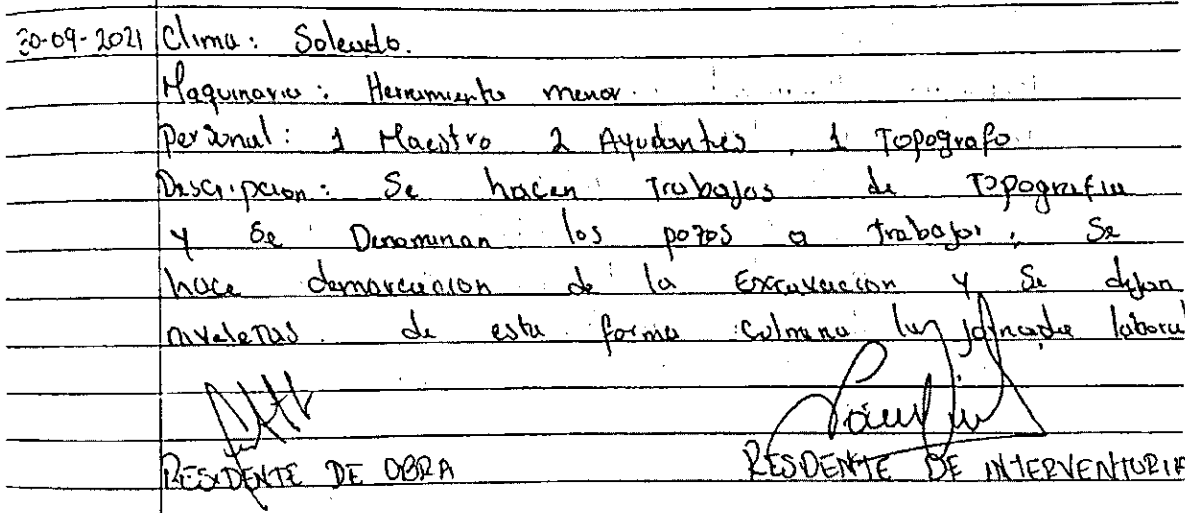 30-09-2021 Clima: Soleado.
Maquinaria: Herramienta menor.
Personal: 1 Maestro 2 Ayudantes, 1 Topografo
Descripcion: Se hacen Trabajos de Topografia
y se Denominan los pozos a trabajar, Se
hace demarcacion de la Excavacion y Se dejan
niveletas. de esta forma culmina la jornada laboral
RESIDENTE DE OBRA RESIDENTE DE INTERVENTORIA